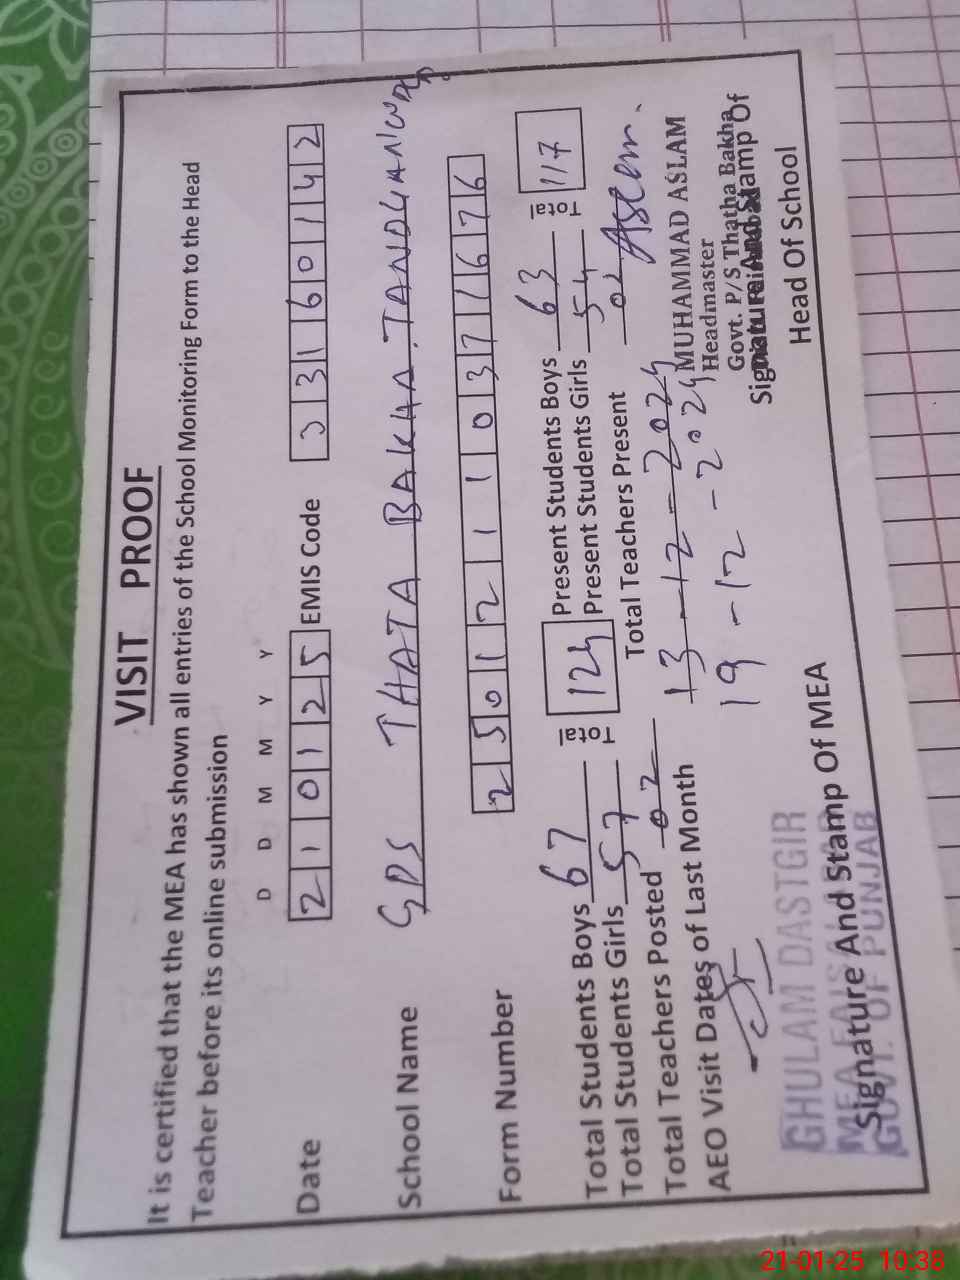 VISIT PROOF
It is certified that the MEA has shown all entries of the School Monitoring Form to the Head
Teacher before its online submission
D D M M Y Y
Date 2 1 0 1 2 5 EMIS Code 3 3 1 6 0 1 4 2
School Name GPS THATA BAKHA TANDLIANWALA
Form Number 2 5 0 1 2 1 1 0 3 7 1 6 7 6
Total Students Boys 67 Total 124 Present Students Boys 63 Total 117
Total Students Girls 57 Present Students Girls 54
Total Teachers Posted 02 Total Teachers Present 02
AEO Visit Dates of Last Month 13-12-2024
19-12-2024
Aslam.
MUHAMMAD ASLAM
Headmaster
Govt. P/S Thatha Bakha
Signature And Stamp Of
Head Of School
GHULAM DASTGIR
MEA
GOVT. OF PUNJAB
Signature And Stamp Of MEA
21-01-25 10:38